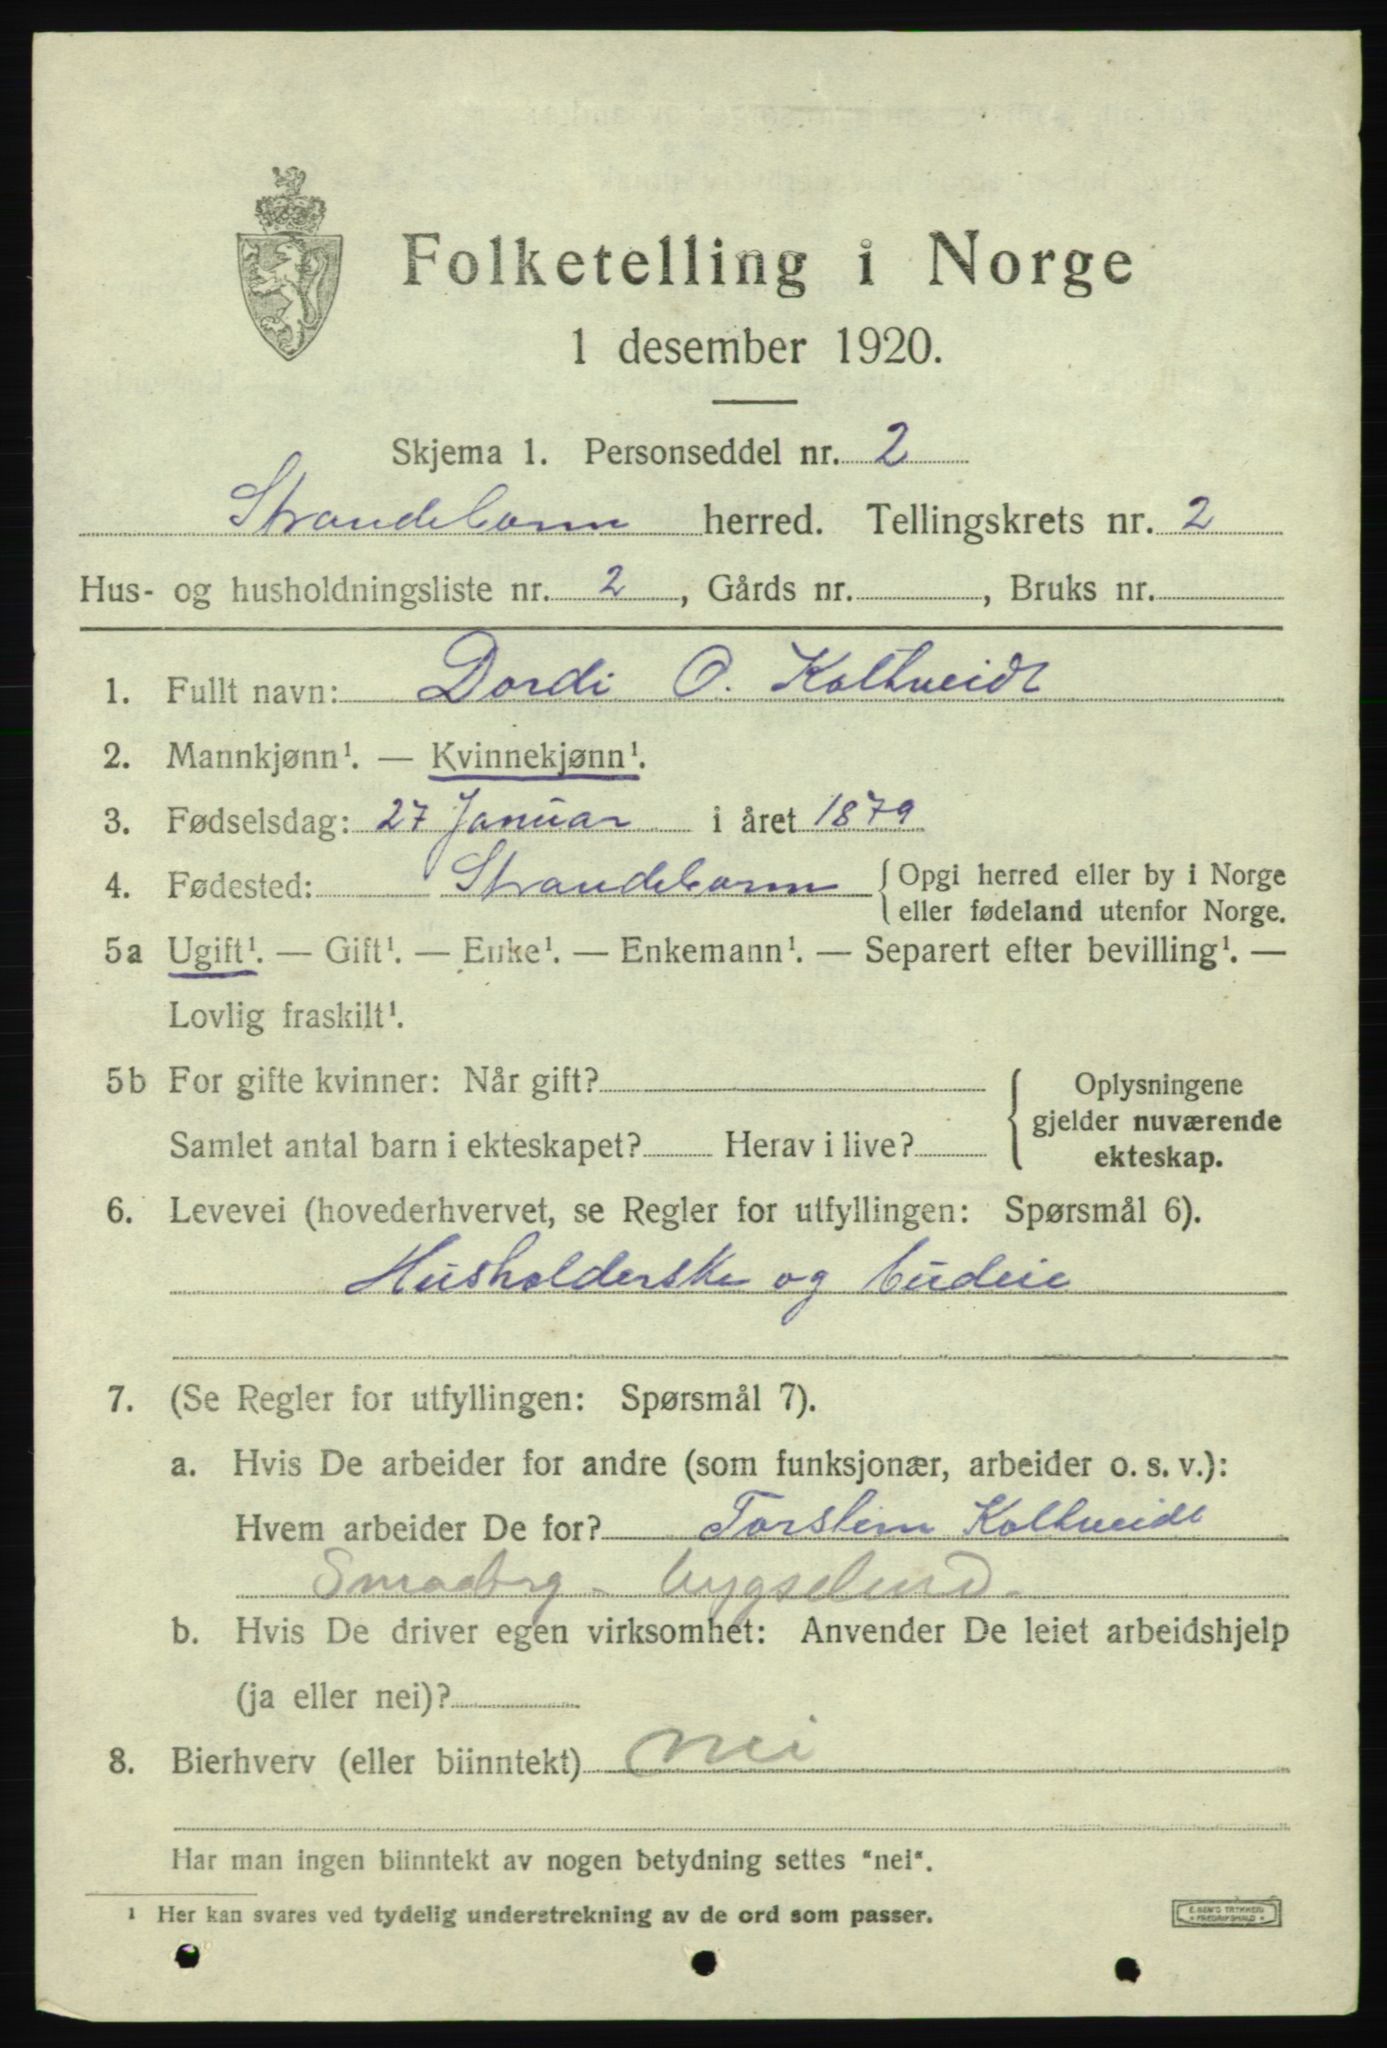 Folketelling i Norge
1 desember 1920.
Skjema 1. Personseddel nr. 2
Strandebarm herred. Tellingskrets nr. 2
Hus- og husholdningsliste nr. 2, Gårds nr. , Bruks nr.
1. Fullt navn: Dordi O. Koltveidt
2. Mannkjønn¹. — Kvinnekjønn¹.
3. Fødselsdag: 27 Januar i året 1879
4. Fødested: Strandebarm { Opgi herred eller by i Norge
eller fødeland utenfor Norge.
5a Ugift¹. — Gift¹. — Enke¹. — Enkemann¹. — Separert efter bevilling¹. —
Lovlig fraskilt¹.
5b For gifte kvinner: Når gift? { Oplysningene
gjelder nuværende
Samlet antal barn i ekteskapet? Herav i live?
ekteskap.
6. Levevei (hovederhvervet, se Regler for utfyllingen: Spørsmål 6).
Husholderske og budeie
7. (Se Regler for utfyllingen: Spørsmål 7).
a. Hvis De arbeider for andre (som funksjonær, arbeider o. s. v.):
Hvem arbeider De for? Torstein Koltveidt
Smaabrg.
b. Hvis De driver egen virksomhet: Anvender De leiet arbeidshjelp
(ja eller nei)?
8. Bierhverv (eller biinntekt) nei
Har man ingen biinntekt av nogen betydning settes "nei".
¹ Her kan svares ved tydelig understrekning av de ord som passer.
FREDRIKSHALD